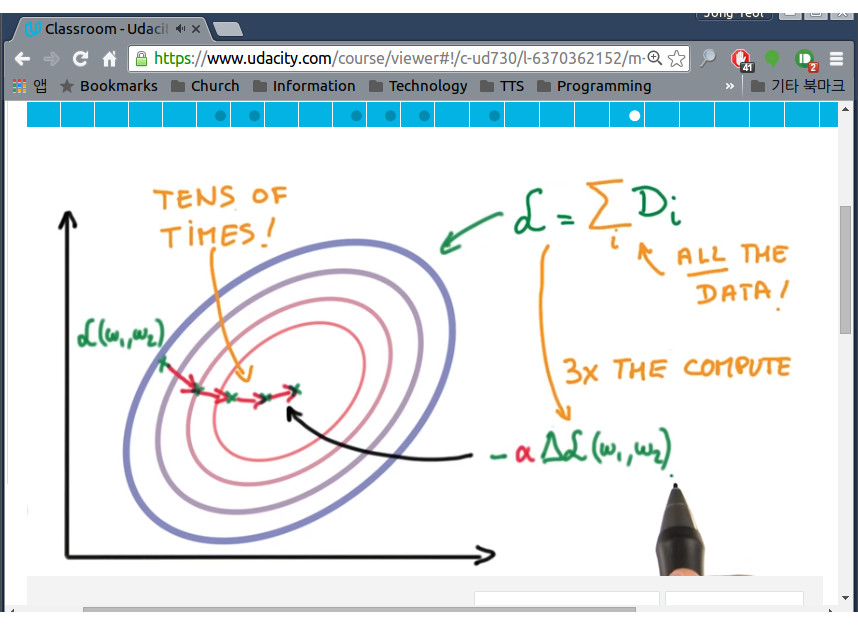 Classroom - Udaci
https://www.udacity.com/course/viewer#!/c-ud730/l-6370362152/m-
41
2
앱
Bookmarks
Church
Information
Technology
TTS
Programming
»
기타 북마크
TENS OF
TIMES!
ℒ = Σ Di
i
ALL THE
DATA!
ℒ(ω₁,ω₂)
3X THE COMPUTE
-α Δℒ(ω₁,ω₂)